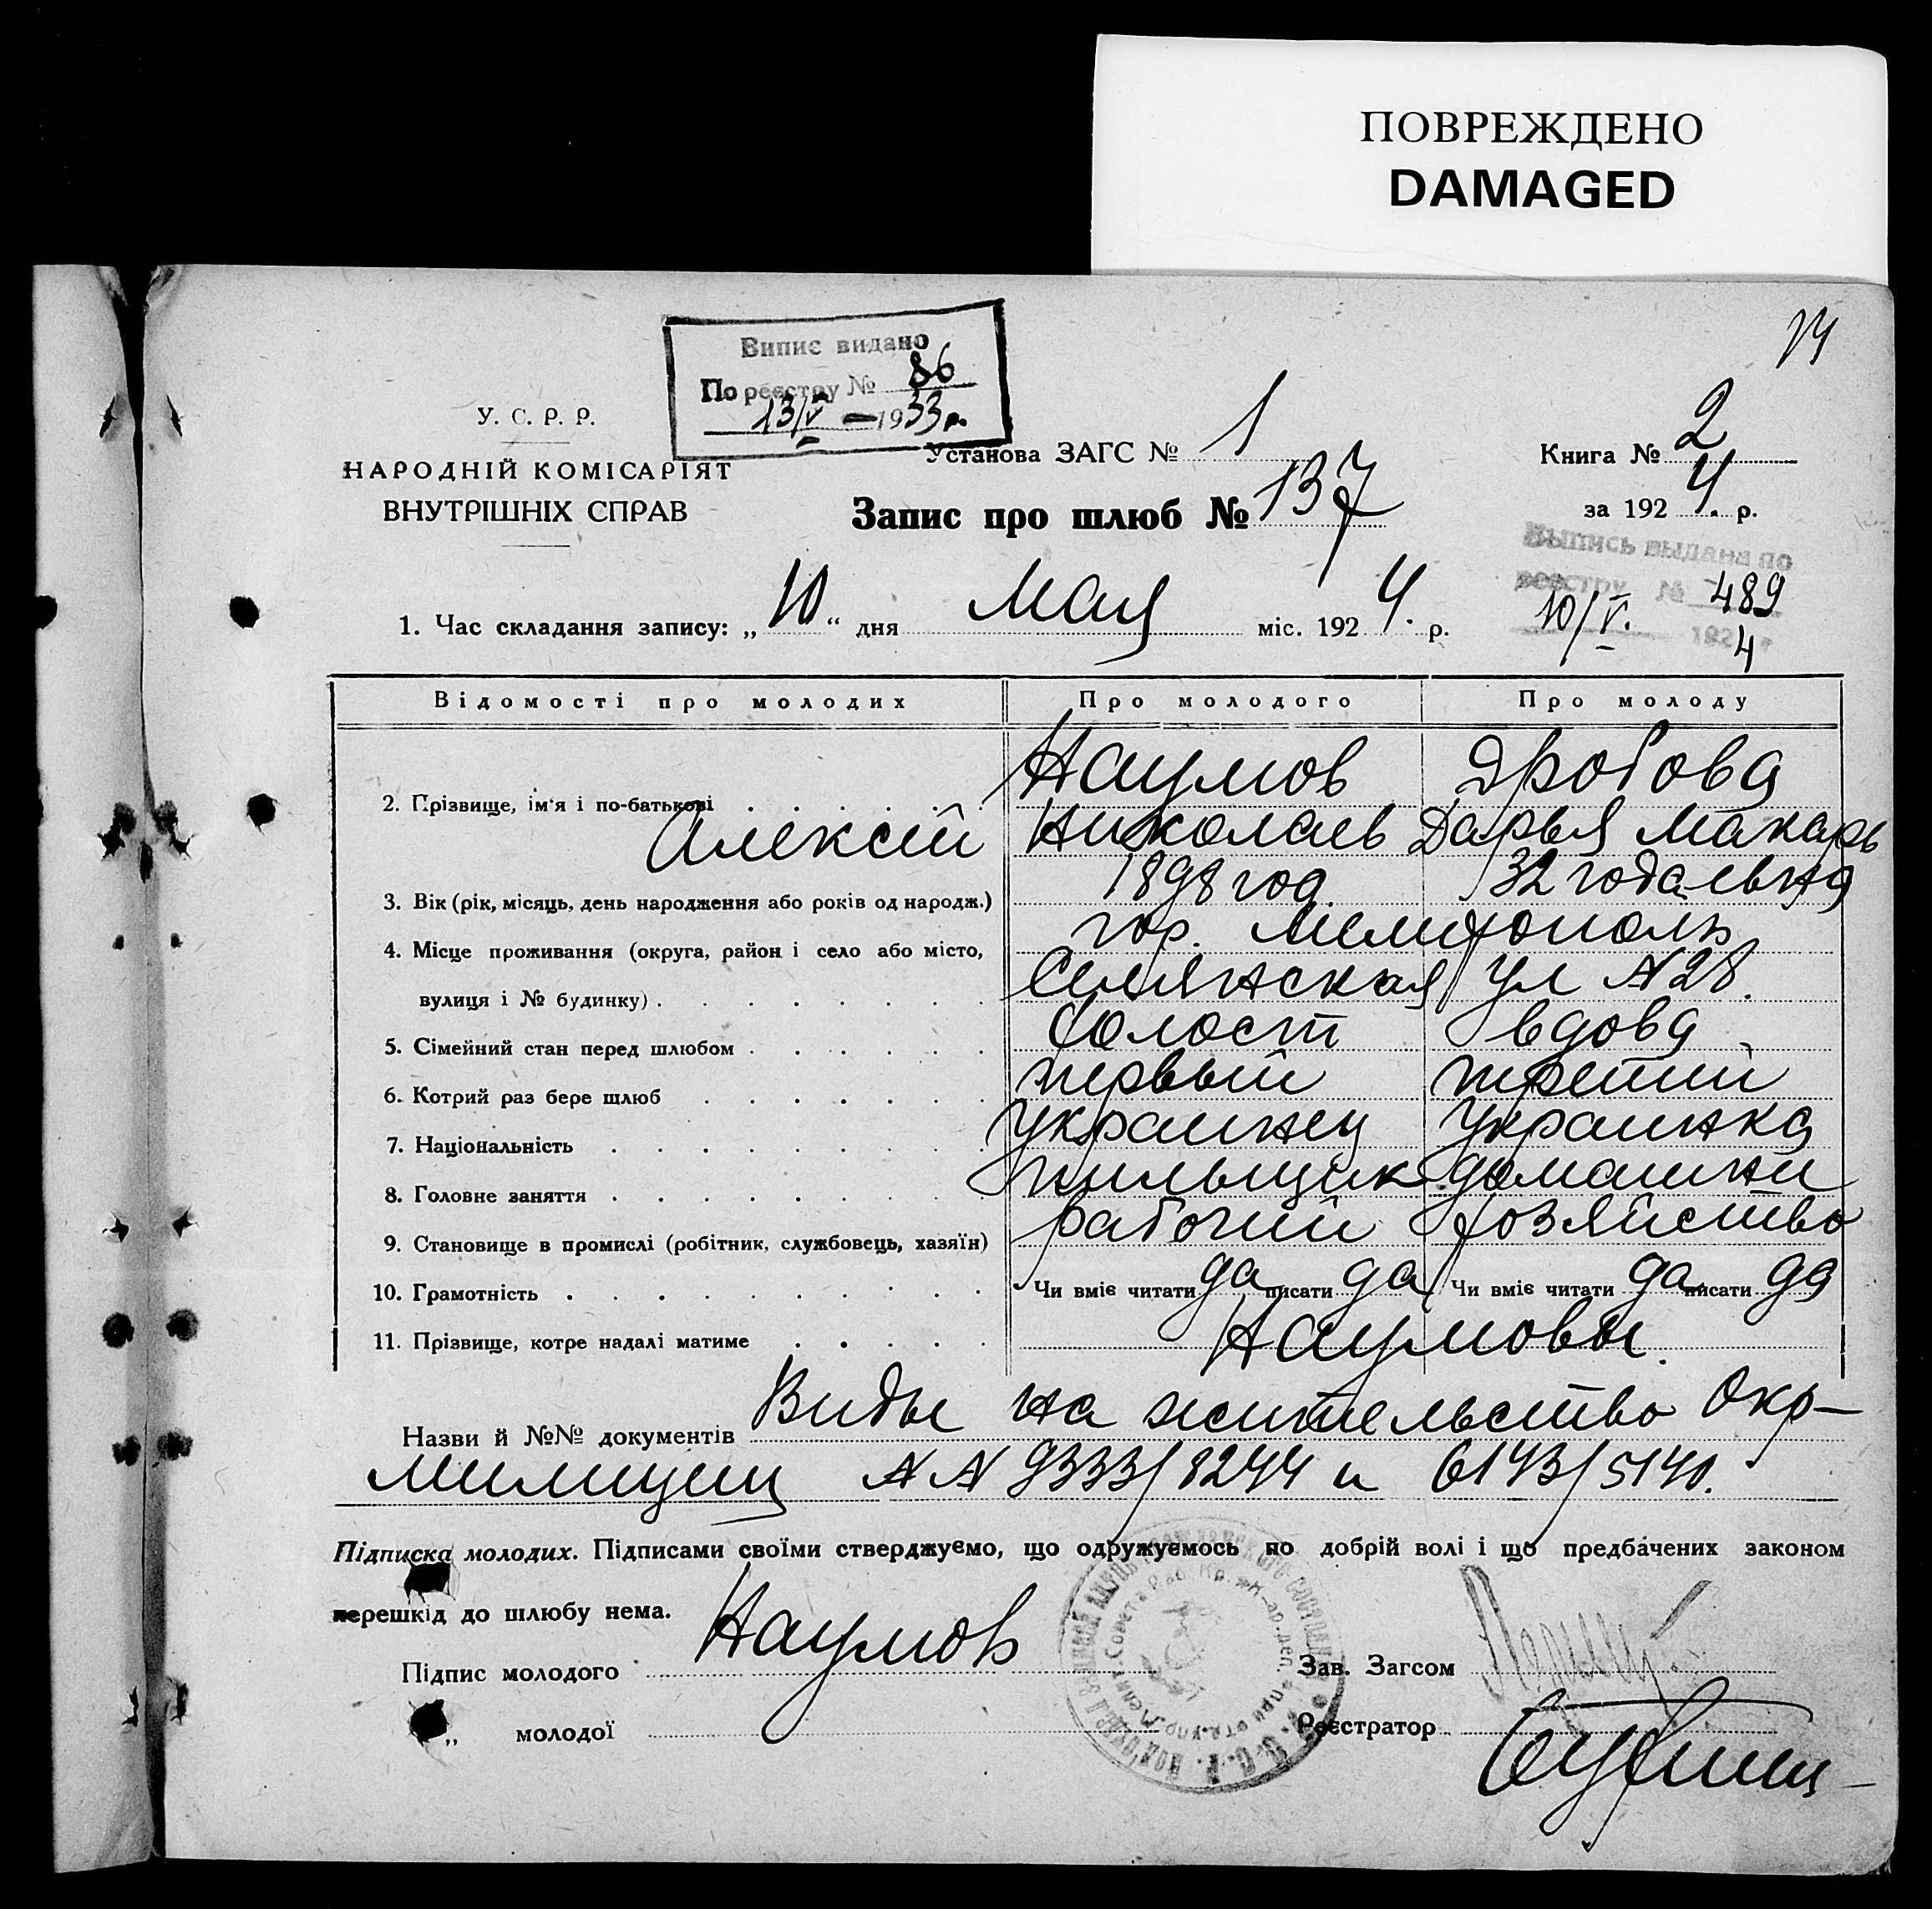 ПОВРЕЖДЕНО
DAMAGED
14
Випис видано
По реєстру № 86
13/V – 1933 р.
У. С. Р. Р.
НАРОДНІЙ КОМІСАРІЯТ
ВНУТРІШНІХ СПРАВ
Установа ЗАГС № 1
Книга № 2
за 1924. р.
Запис про шлюб № 137
Выпись выдана по
реестру № 489
10/V. 1924
1. Час складання запису: „10“ дня Мая міс. 1924. р.
Відомості про молодих Про молодого Про молоду
2. Прізвище, ім'я і по-батькові Наумов Дробова
Алексей Николаев Дарья Макарь
3. Вік (рік, місяць, день народження або років од народж.) 1898 год 32 года евна
4. Місце проживання (округа, район і село або місто, гор. Мелитополь
вулиця і № будинку) Селянская ул N 28.
5. Сімейний стан перед шлюбом холост вдова
6. Котрий раз бере шлюб первый третий
7. Національність украинец украинка
8. Головне заняття пильщик домашни
9. Становище в промислі (робітник, службовець, хазяїн) рабочий хозяйство
10. Грамотність Чи вміє читати да писати да Чи вміє читати да писати да
11. Прізвище, котре надалі матиме Наумовы.
Назви й №№ документів Виды на жительство Окр-
милиции N N 9333/8244 и 6143/5140.
Підписка молодих. Підписами своїми стверджуємо, що одружуємось по добрій волі і що предбачених законом
перешкід до шлюбу нема.
Підпис молодого Наумов
Зав. Загсом
„ молодої
Реєстратор